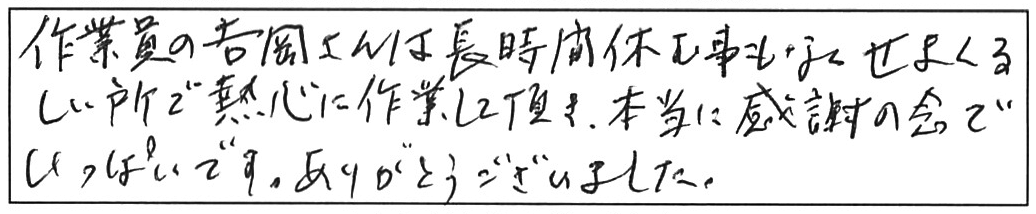 作業員の吉岡さんは長時間休む事もなくせまくる
しい所で熱心に作業して頂き、本当に感謝の念で
いっぱいです。ありがとうございました。